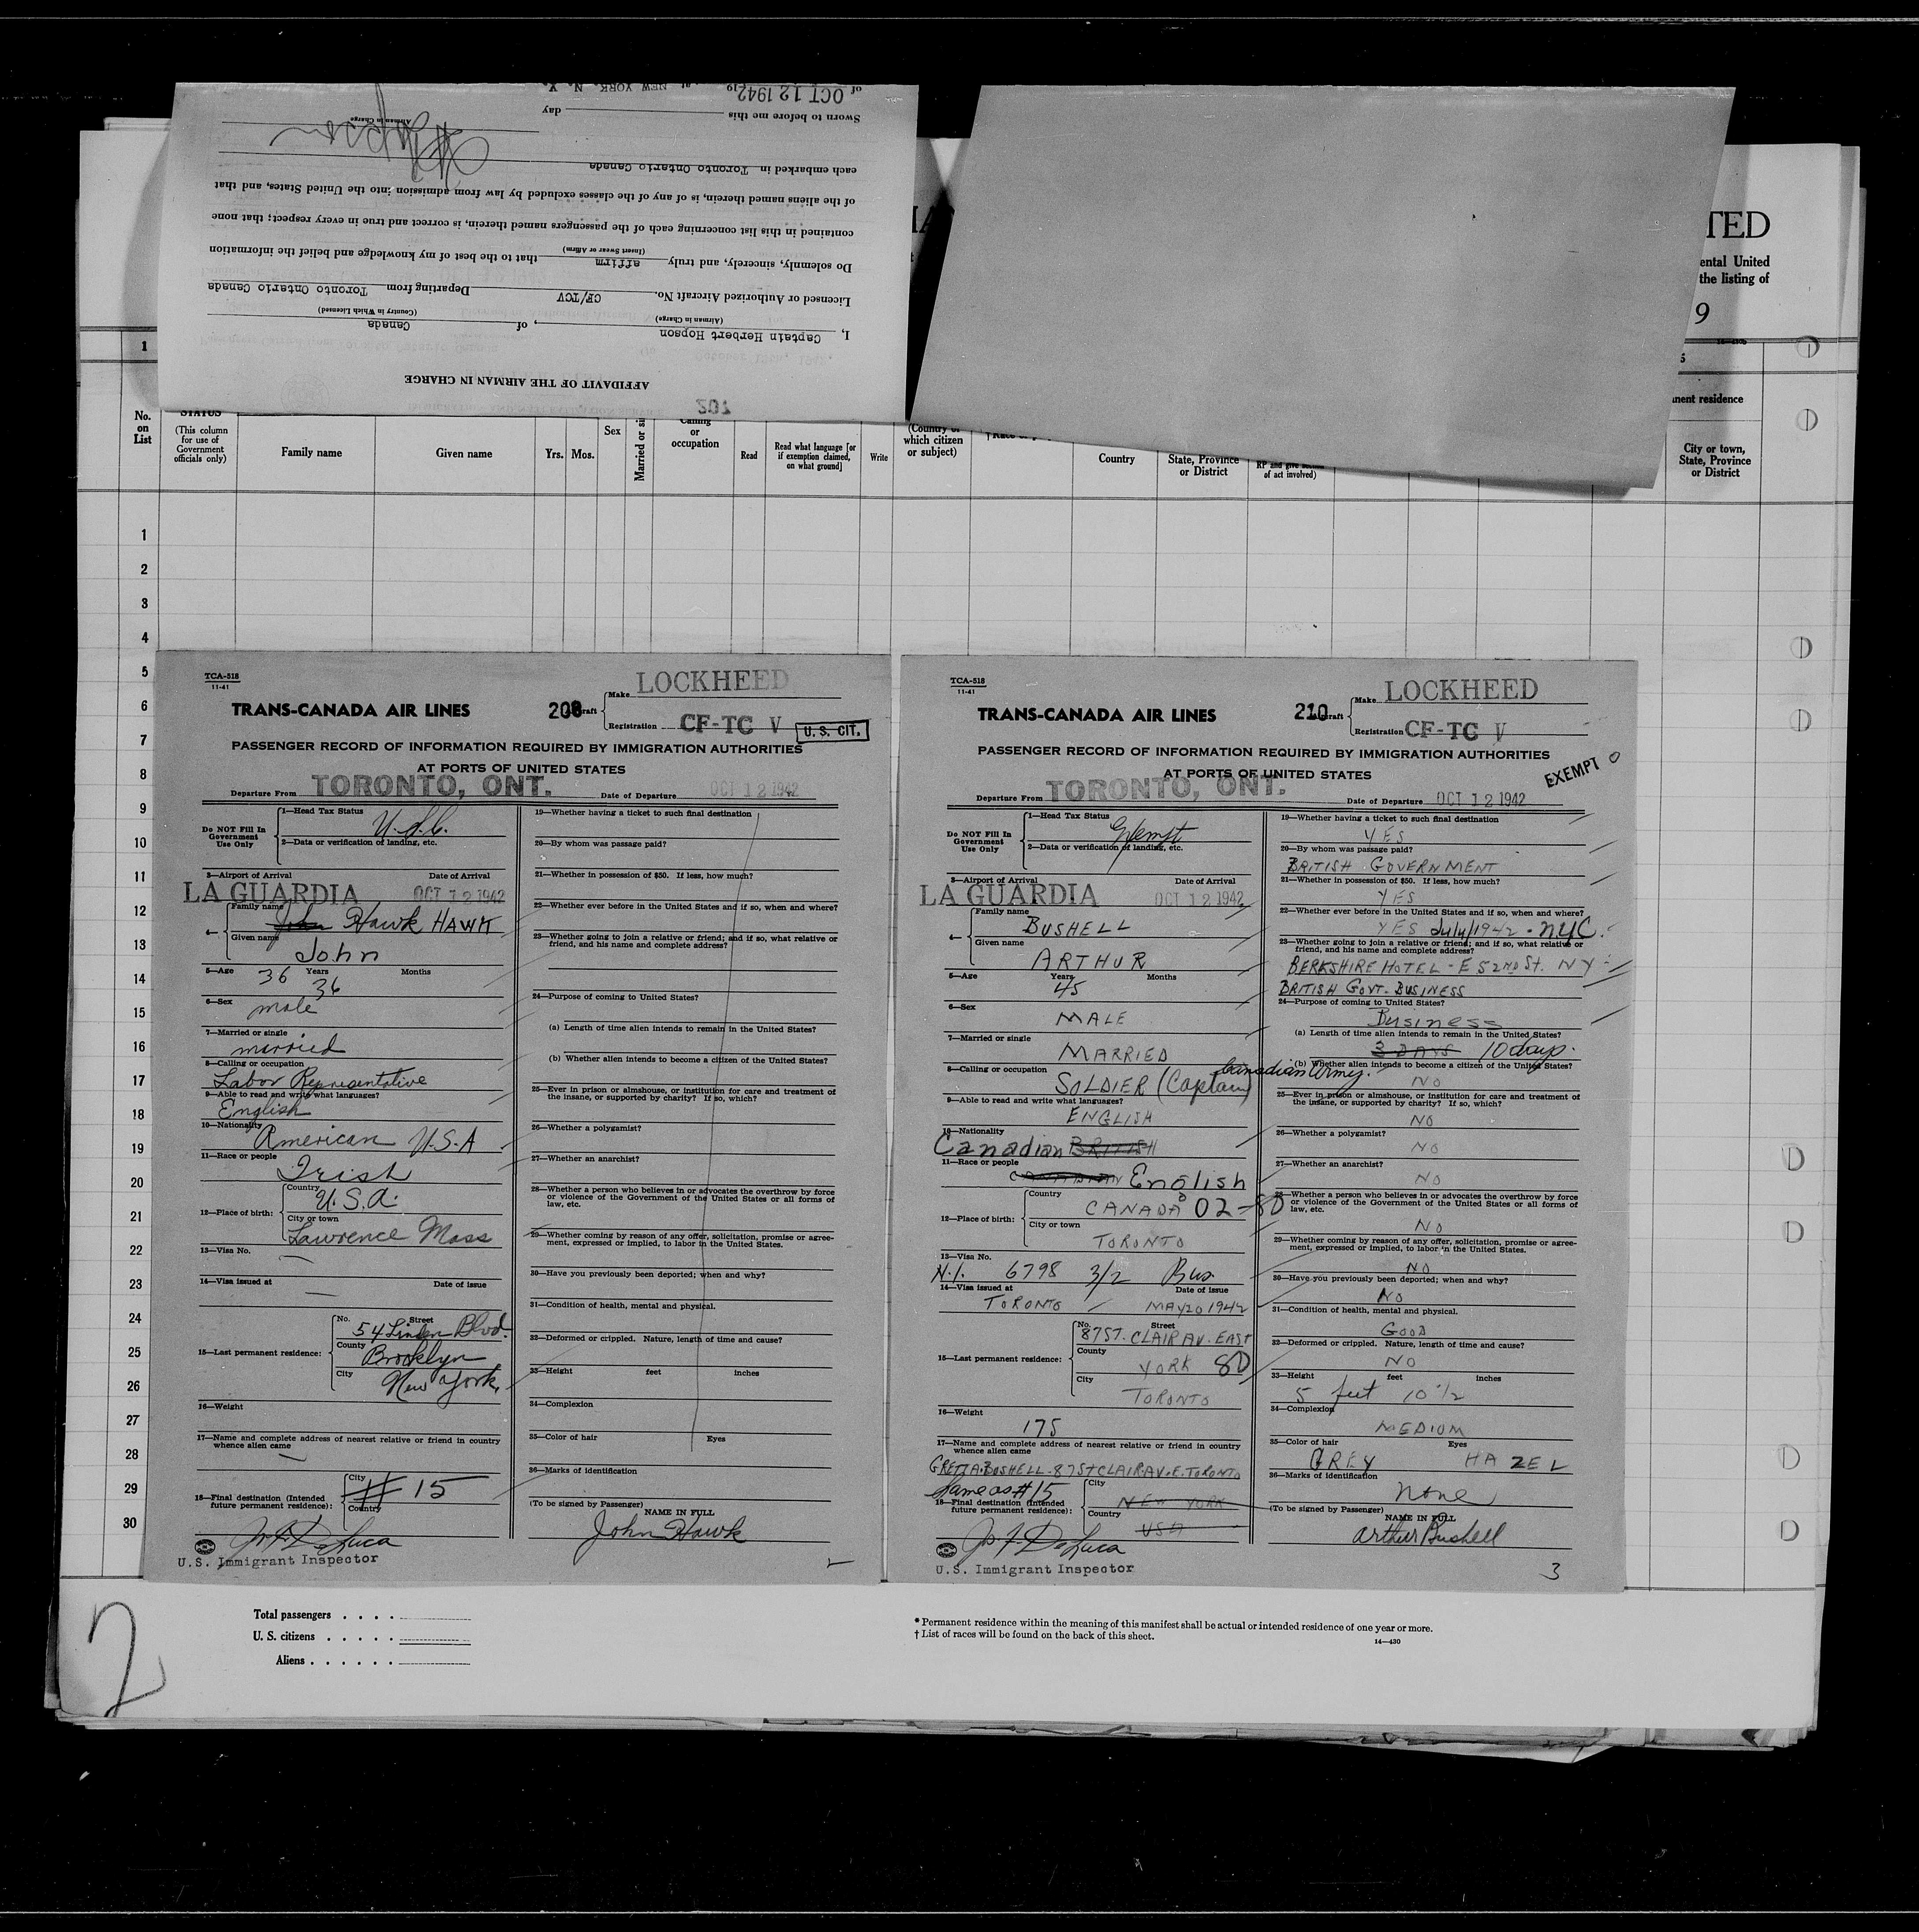 AFFIDAVIT OF THE AIRMAN IN CHARGE
207
I, Captain Herbert Hopson, of Canada
(Airman in Charge) (Country in Which Licensed)
Licensed or Authorized Aircraft No. CF/TCV Departing from Toronto Ontario Canada
Do solemnly, sincerely, and truly affirm that to the best of my knowledge and belief the information
(Insert Swear or Affirm)
contained in this list concerning each of the passengers named therein, is correct and true in every respect; that none
of the aliens named therein, is of any of the classes excluded by law from admission into the United States, and that
each embarked in Toronto Ontario Canada
Airman in Charge
Sworn to before me this day
of OCT 12 1942 19 at NEW YORK, N. Y.
TED
ental United
the listing of
9
1
No. on List
STATUS
(This column for use of Government officials only)
Family name
Given name
Yrs. Mos.
Sex
Married or si
Calling or occupation
Read
Read what language [or if exemption claimed, on what ground]
Write
(Country of which citizen or subject)
Country
State, Province or District
of act involved)
nent residence
City or town, State, Province or District
1
2
3
4
5
6
7
8
9
10
11
12
13
14
15
16
17
18
19
20
21
22
23
24
25
26
27
28
29
30
TCA-518
11-41
TRANS-CANADA AIR LINES
208
Make LOCKHEED
Registration CF-TC V
U. S. CIT.
PASSENGER RECORD OF INFORMATION REQUIRED BY IMMIGRATION AUTHORITIES
AT PORTS OF UNITED STATES
Departure From TORONTO, ONT. Date of Departure OCT 12 1942
Do NOT Fill In Government Use Only
1—Head Tax Status
U.S.C.
2—Data or verification of landing, etc.
3—Airport of Arrival Date of Arrival
LA GUARDIA OCT 12 1942
4— Family name John Hawk HAWK
Given name
John
5—Age 36 Years Months
36
6—Sex
male
7—Married or single
married
8—Calling or occupation
Labor Representative
9—Able to read and write what languages?
English
10—Nationality
American U.S.A
11—Race or people
Irish
12—Place of birth: Country
U.S.A.
City or town
Lawrence Mass
13—Visa No.
14—Visa issued at Date of issue
15—Last permanent residence: No. Street
54 Linden Blvd.
County
Brooklyn
City
New York.
16—Weight
17—Name and complete address of nearest relative or friend in country
whence alien came
18—Final destination (Intended
future permanent residence): City
# 15
Country
U.S. Immigrant Inspector
19—Whether having a ticket to such final destination
20—By whom was passage paid?
21—Whether in possession of $50. If less, how much?
22—Whether ever before in the United States and if so, when and where?
23—Whether going to join a relative or friend; and if so, what relative or
friend, and his name and complete address?
24—Purpose of coming to United States?
(a) Length of time alien intends to remain in the United States?
(b) Whether alien intends to become a citizen of the United States?
25—Ever in prison or almshouse, or institution for care and treatment of
the insane, or supported by charity? If so, which?
26—Whether a polygamist?
27—Whether an anarchist?
28—Whether a person who believes in or advocates the overthrow by force
or violence of the Government of the United States or all forms of
law, etc.
29—Whether coming by reason of any offer, solicitation, promise or agree-
ment, expressed or implied, to labor in the United States.
30—Have you previously been deported; when and why?
31—Condition of health, mental and physical.
32—Deformed or crippled. Nature, length of time and cause?
33—Height feet inches
34—Complexion
35—Color of hair Eyes
36—Marks of identification
(To be signed by Passenger)
NAME IN FULL
John Hawk
TCA-518
11-41
TRANS-CANADA AIR LINES
210
Make LOCKHEED
Registration CF-TC V
PASSENGER RECORD OF INFORMATION REQUIRED BY IMMIGRATION AUTHORITIES
AT PORTS OF UNITED STATES
EXEMPT
Departure From TORONTO, ONT. Date of Departure OCT 12 1942
Do NOT Fill In Government Use Only
1—Head Tax Status
Exempt
2—Data or verification of landing, etc.
3—Airport of Arrival Date of Arrival
LA GUARDIA OCT 12 1942
4— Family name
BUSHELL
Given name
ARTHUR
5—Age Years Months
45
6—Sex
MALE
7—Married or single
MARRIED
8—Calling or occupation
SOLDIER (Captain) Canadian Army.
9—Able to read and write what languages?
ENGLISH
10—Nationality
Canadian BRITISH
11—Race or people
CANADIAN English
12—Place of birth: Country
CANADA 02-80
City or town
TORONTO
13—Visa No.
N.I. 6798 3/2 Bus.
14—Visa issued at Date of issue
TORONTO MAY 20 1942
15—Last permanent residence: No. Street
87 ST. CLAIR AV. EAST
County
YORK 80
City
TORONTO
16—Weight
175
17—Name and complete address of nearest relative or friend in country
whence alien came
GRETTA BUSHELL - 87 ST CLAIR AV. E. TORONTO
Same as #15
18—Final destination (Intended
future permanent residence): City
NEW YORK
Country
USA
U.S. Immigrant Inspector
19—Whether having a ticket to such final destination
YES
20—By whom was passage paid?
BRITISH GOVERNMENT
21—Whether in possession of $50. If less, how much?
YES
22—Whether ever before in the United States and if so, when and where?
YES July/1942 - NYC.
23—Whether going to join a relative or friend; and if so, what relative or
friend, and his name and complete address?
BERKSHIRE HOTEL - E 52ND St. NY
BRITISH GOVT. BUSINESS
24—Purpose of coming to United States?
Business
(a) Length of time alien intends to remain in the United States?
3 DAYS 10 days.
(b) Whether alien intends to become a citizen of the United States?
NO
25—Ever in prison or almshouse, or institution for care and treatment of
the insane, or supported by charity? If so, which?
NO
26—Whether a polygamist?
NO
27—Whether an anarchist?
NO
28—Whether a person who believes in or advocates the overthrow by force
or violence of the Government of the United States or all forms of
law, etc.
NO
29—Whether coming by reason of any offer, solicitation, promise or agree-
ment, expressed or implied, to labor in the United States.
NO
30—Have you previously been deported; when and why?
NO
31—Condition of health, mental and physical.
GOOD
32—Deformed or crippled. Nature, length of time and cause?
NO
33—Height feet inches
5 feet 10 1/2
34—Complexion
MEDIUM
35—Color of hair Eyes
GREY HAZEL
36—Marks of identification
None
(To be signed by Passenger)
NAME IN FULL
Arthur Bushell
3
2
Total passengers
U. S. citizens
Aliens
* Permanent residence within the meaning of this manifest shall be actual or intended residence of one year or more.
† List of races will be found on the back of this sheet.
14—430